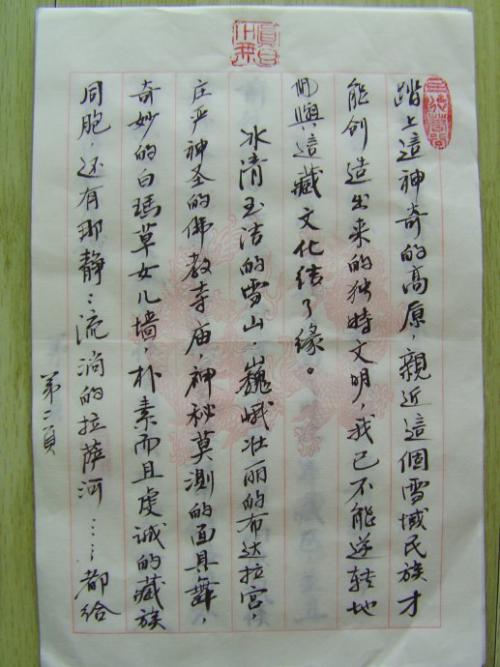 踏上這神奇的高原，親近這個雪域民族才
能创造出来的独特文明，我已不能逆转地
与這藏文化结了缘。
冰清玉洁的雪山，巍峨壮丽的布达拉宫，
庄严神圣的佛教寺庙，神秘莫测的面具舞，
奇妙的白玛草女儿墙，朴素而且虔诚的藏族
同胞，还有那静：流淌的拉萨河……都给
第二頁